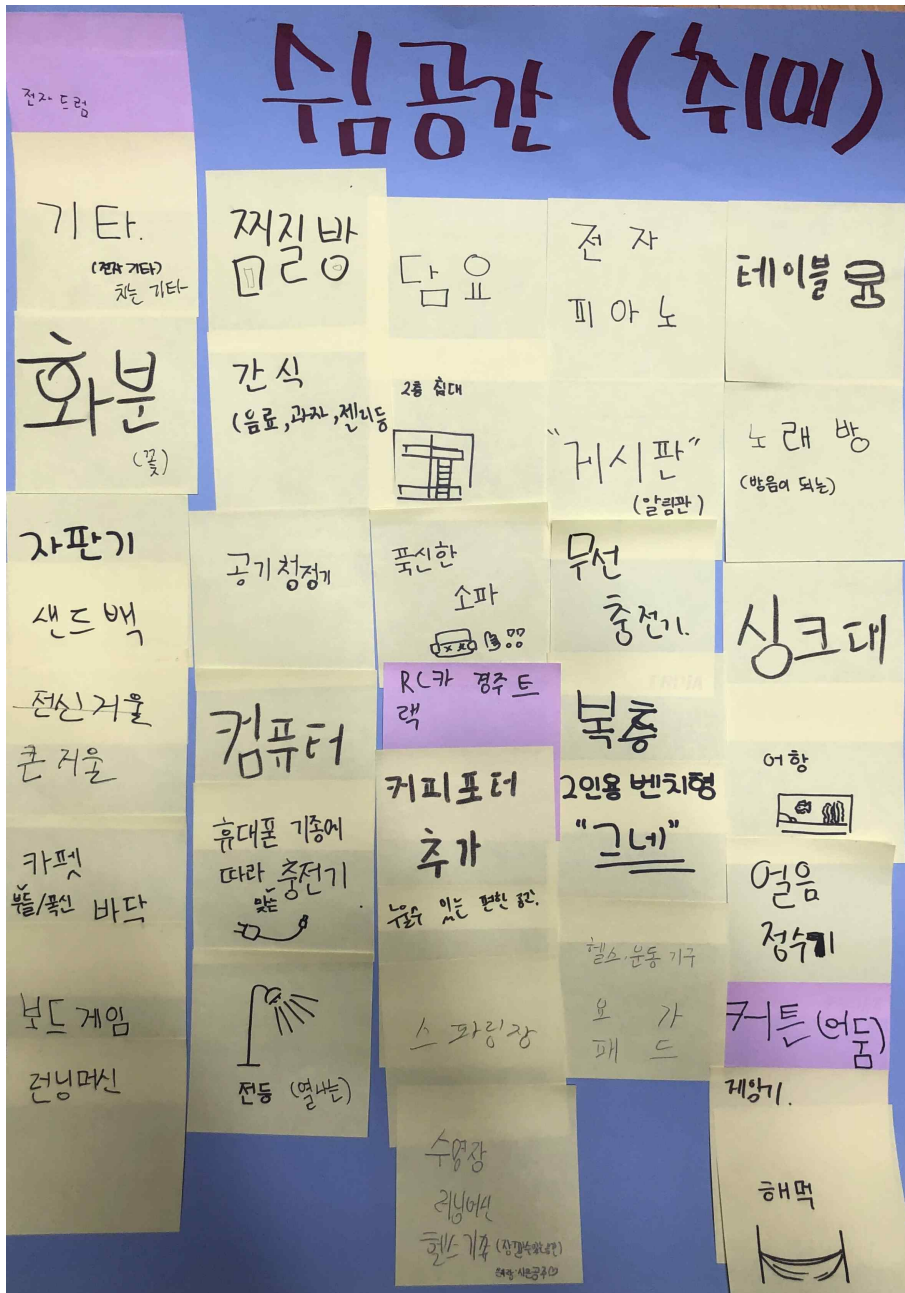 쉼공간 (취미)
전자 드럼
기타.
(전자 기타)
치는 기타
화분
(꽃)
자판기
샌드백
전신거울
큰 거울
카펫
부들/폭신 바닥
보드게임
런닝머신
찜질방
간식
(음료, 과자, 젤리등
공기청정기
컴퓨터
휴대폰 기종에
따라 충전기
맞는
전등 (열나는)
담요
2층 침대
푹신한
소파
RC카 경주트
랙
커피포터
추가
누울수 있는 편한 공간.
스파링장
수영장
러닝머신
헬스기구
전자
피아노
"게시판"
(알림판)
무선
충전기.
복층
2인용 벤치형
"그네"
헬스·운동 기구
요가
패드
테이블
노래방
(방음이 되는)
싱크대
어항
얼음
정수기
커튼 (어둠)
제양기.
해먹